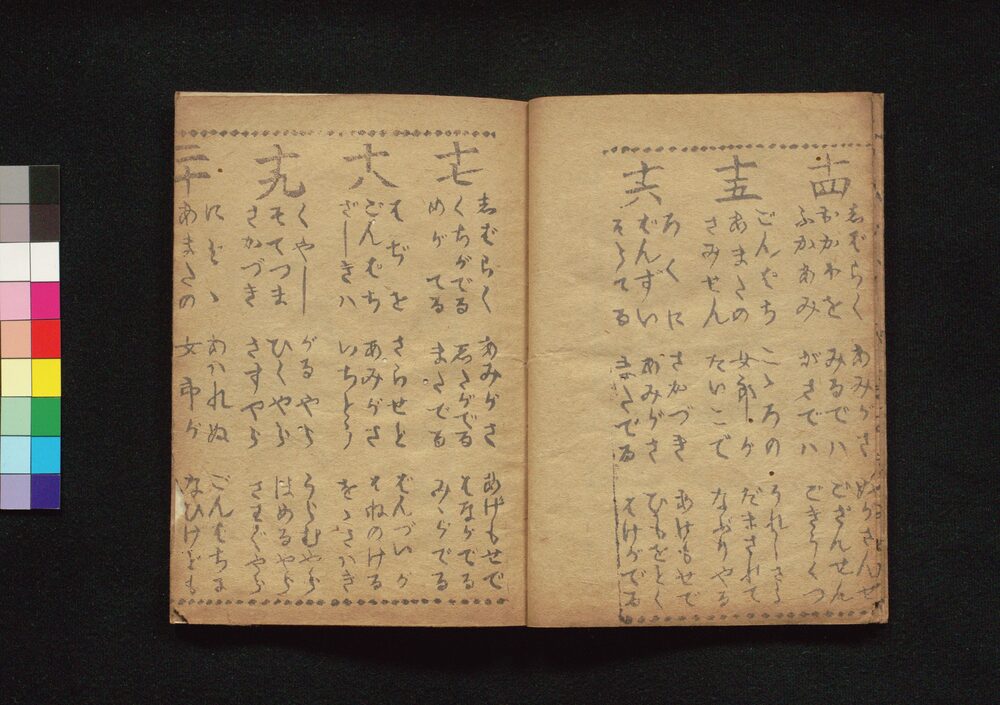 十四
志むらく あみがさ めさんせ
おかわを みるでハ ござんせん
ふかあみ がさでハ ごきらくつ
十五
ごんむち こゝろの うれしさら
あまたの 女郎ガ だまされて
さみせん たいこで なぶりやる
十六
ろくに さかづき あけもせで
むんずい あみがさ ひもをとく
そらてる まだでる そけがでる
十七
志むらく あみがさ あげもせで
くちがでる 志たがでる そながでる
めがてる まだでる みゝがでる
十八
そぢを さらせと むんづいが
ごんむち あみがさ そねのける
ざしきハ いちどう
十九
くやし がるやら うらむやら
そてつま ひくやら はめるやら
さかづき さすやら さわぐやら
二十
にどゝ あかれぬ ごんむちに
あまたの 女郎ガ なひけども